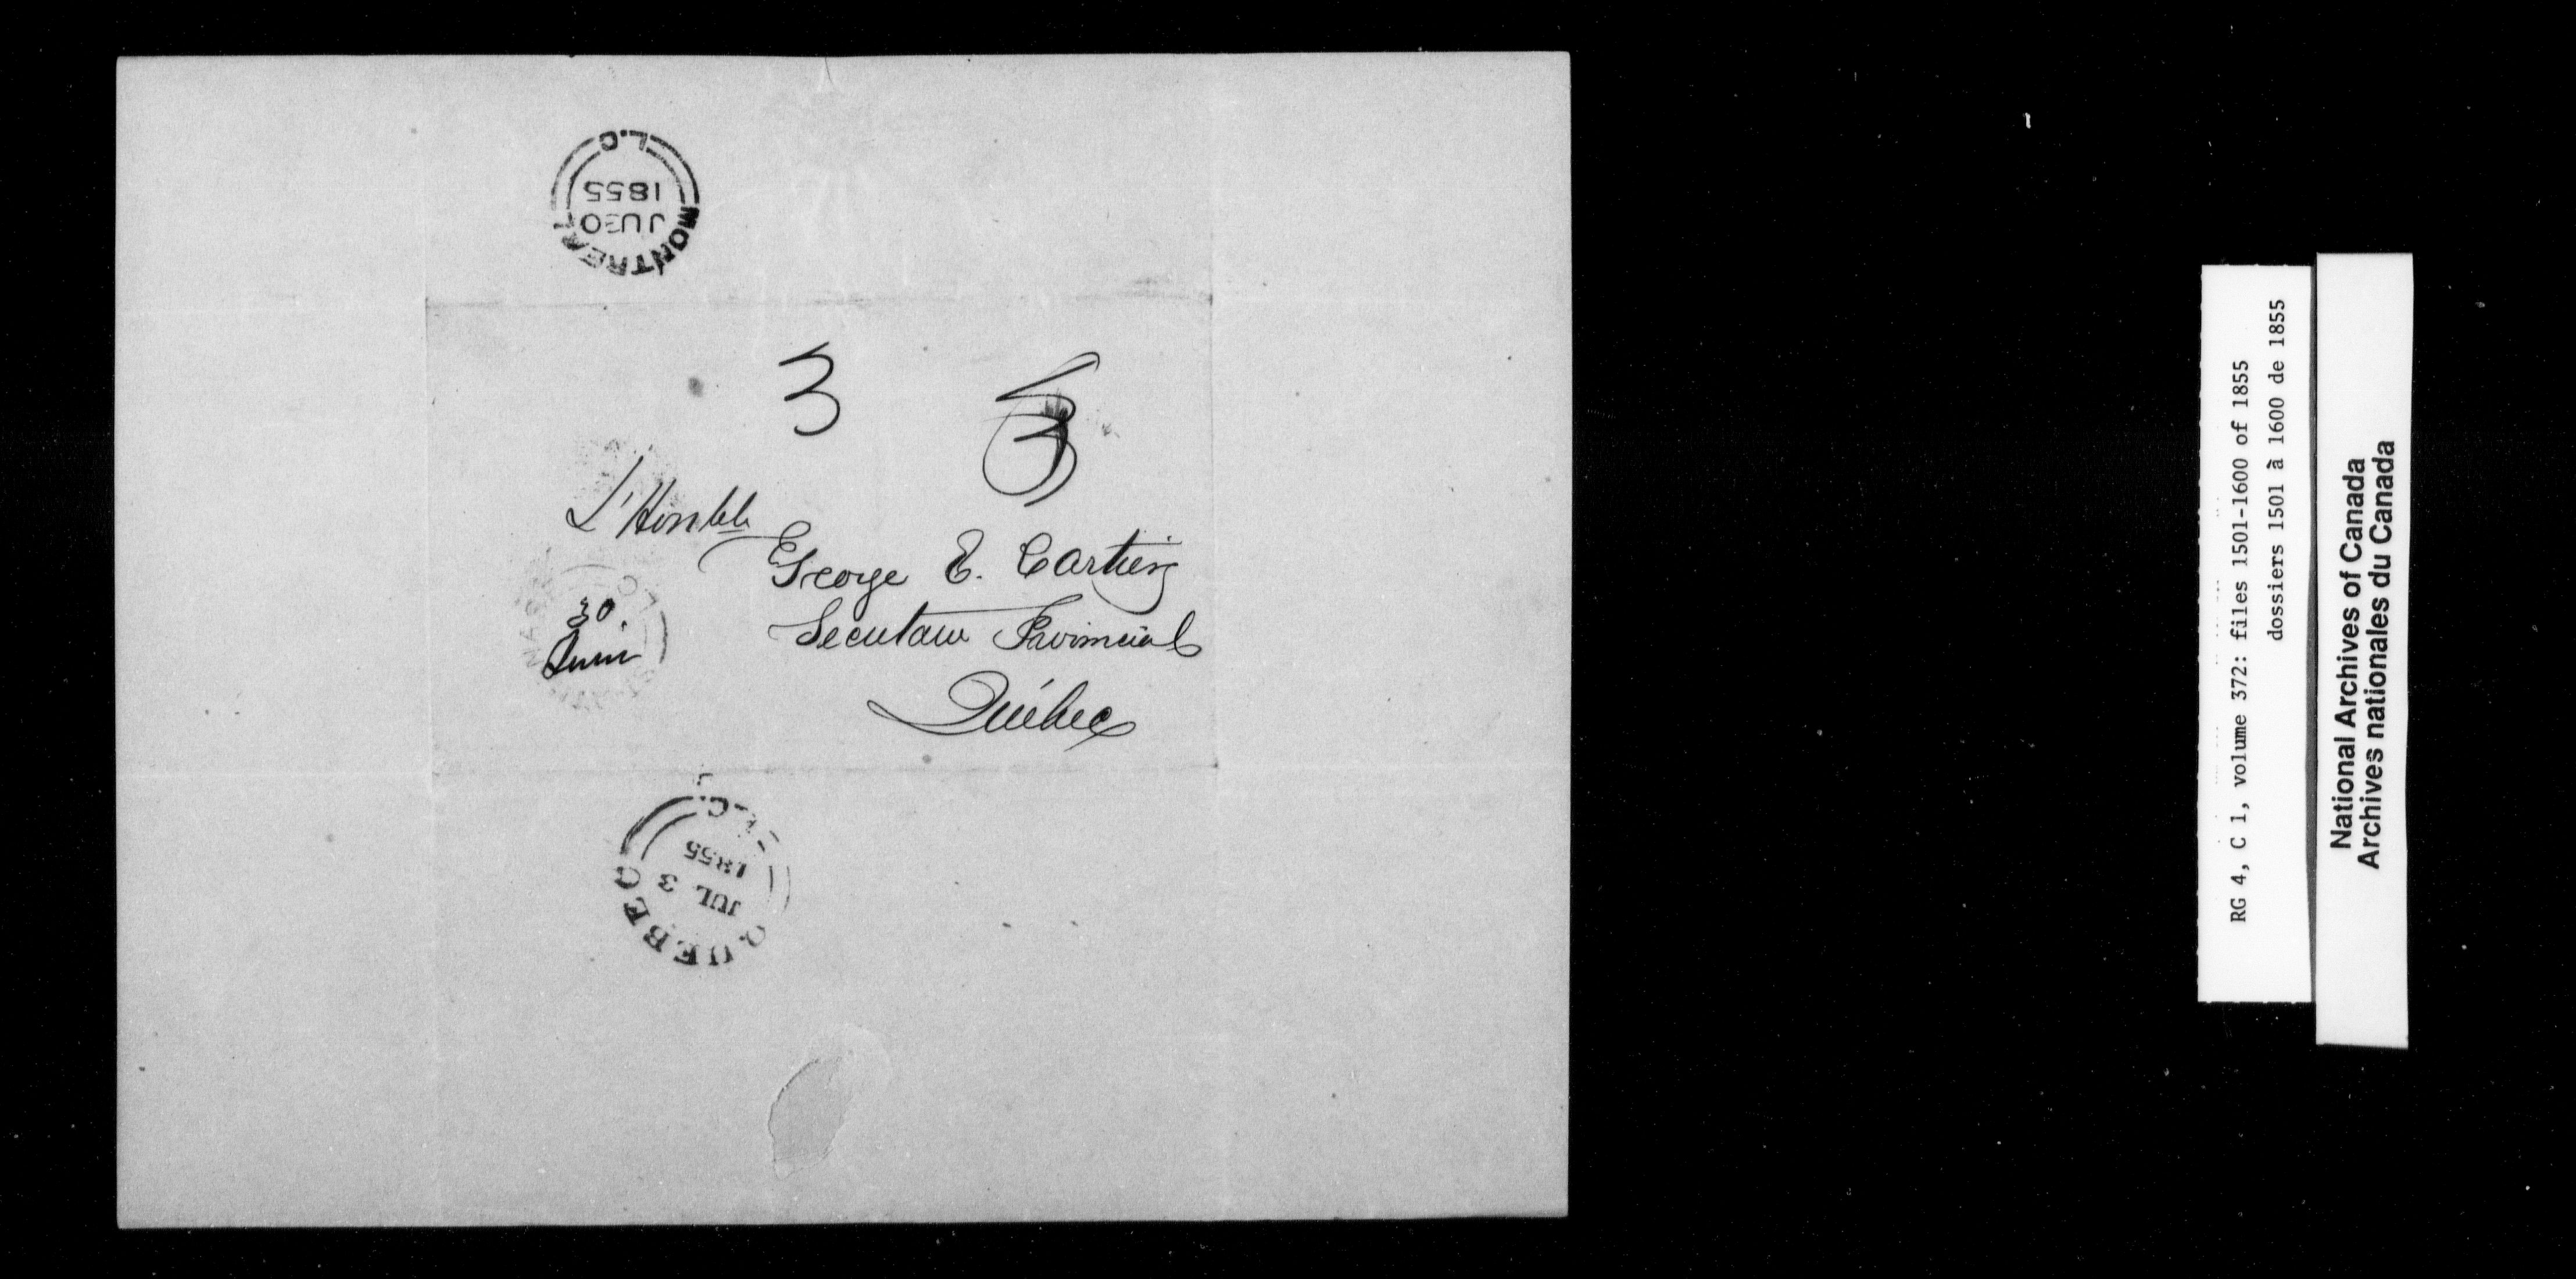 MONTREAL
JU 30
1855
L.C
3 3
L'Honble
George E. Cartier
Secretaire Provincial
Québec
30
Juin
QUEBEC
JUL 3
1855
L.C.
RG 4, C 1, volume 372: files 1501-1600 of 1855
dossiers 1501 à 1600 de 1855
National Archives of Canada
Archives nationales du Canada